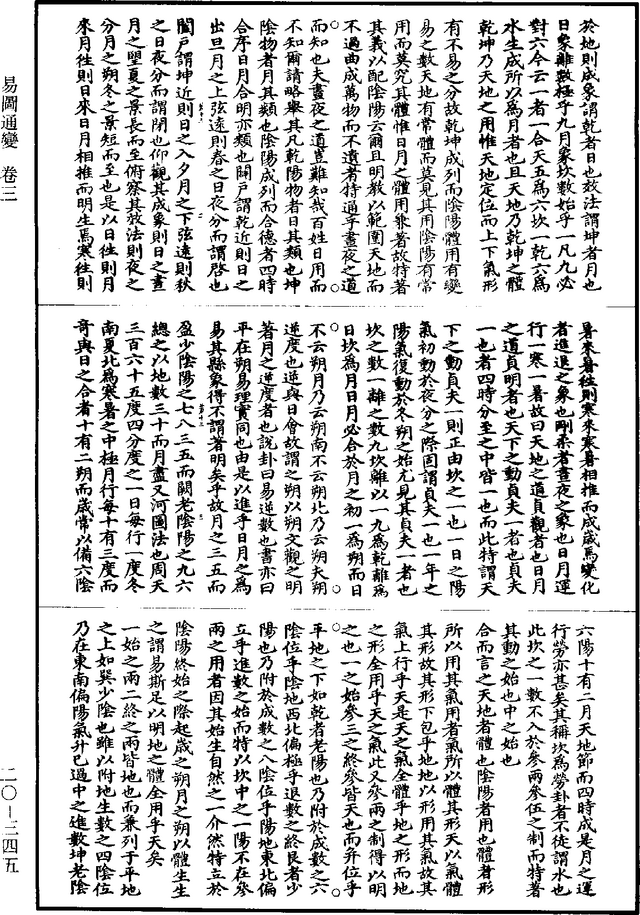 易圖通變　卷三
於地則成象謂乾者日也效法謂坤者月也
日象離數極乎九月象坎數始乎一凡九必
對六今云一者一合天五為六坎一乾六為
水生成所以為月者也且天地乃乾坤之體
乾坤乃天地之用惟天地定位而上下氣形
有不易之分故乾坤成列而陰陽體用有變
易之數天地有常體而莫見其用陰陽有常
用而莫究其體惟日月之體用兼者故特著
其義以配陰陽云爾且明教以範圍天地而
不過曲成萬物而不遺者特通乎晝夜之道
而知也夫晝夜之道豈難知哉百姓日用而
不知爾請略舉其凡乾陽物者日其類也坤
陰物者月其類也陰陽成列而合德者四時
合序日月合明亦類也闢戶謂乾近則日之
出旦月之上弦遠則春之日夜分而謂啓也
闔戶謂坤近則日之入夕月之下弦遠則秋
之日夜分而謂閉也仰觀其成象則日之晝
月之朢夏之景長而至俯察其效法則夜之
分月之朔冬之景短而至也是以日往則月
來月往則日來日月相推而明生焉寒往則
暑來暑往則寒來寒暑相推而成歲焉變化
者進退之象也剛柔者晝夜之象也日月運
行一寒一暑故曰天地之道貞觀者也日月
之道貞明者也天下之動貞夫一者也貞夫
一也者四時分至之中皆一也而此特謂天
下之動貞夫一則正由坎之一也一日之陽
氣初動於夜分之際固謂貞夫一也一年之
陽氣復動於冬朔之始尤見其貞夫一者也
坎之數一離之數九坎離以一九為乾離為
日坎為月日月必合於月之初一為朔而日
不云朔月乃云朔南不云朔北乃云朔夫朔
逆度也逆與日會故謂之朔以朔文觀之明
著月之逆度者也說卦曰易逆數也書亦曰
平在朔易理實同也由是以進乎日月之為
易其縣象得不謂著明矣乎故月之三五而
盈少陰陽之七八三五而闕老陰陽之九六
總之以地數三十而月盡又河圖法也周天
三百六十五度四分度之一日每行一度冬
南夏北為寒暑之中極月行每十有三度而
奇與日之合者十有二朔而歲常以備六陰
六陽十有二月天地節而四時成是月之運
行勞亦甚矣其稱坎為勞卦者不徒謂水也
此坎之一數不入於參兩參伍之制而特著
其動之始也中之始也
合而言之天地者體也陰陽者用也體者形
所以用其氣用者氣所以體其形天以氣體
其形故其形下包乎地地以形用其氣故其
氣上行乎天是天之氣全體乎地之形而地
之形全用乎天之氣此又參兩之制得以明
之也一之始參三之終參皆天也而弁位乎
平地之下如乾者老陽也乃附於成數之六
陰位乎陰地西北偏極乎退數之終艮者少
陽也乃附於成數之八陰位乎陽地東北偏
立乎進數之始而特以坎中之一陽不在參
兩之用者因其始生自然之一介然特立於
陰陽終始之際起歲之朔月之朔以體生生
之謂易斯足以明地之體全用乎天矣
一始之兩二終之兩皆地也而兼列于平地
之上如巽少陰也雖以附地生數之四陰位
乃在東南偏陽氣升已過中之進數坤老陰
二〇—三四五